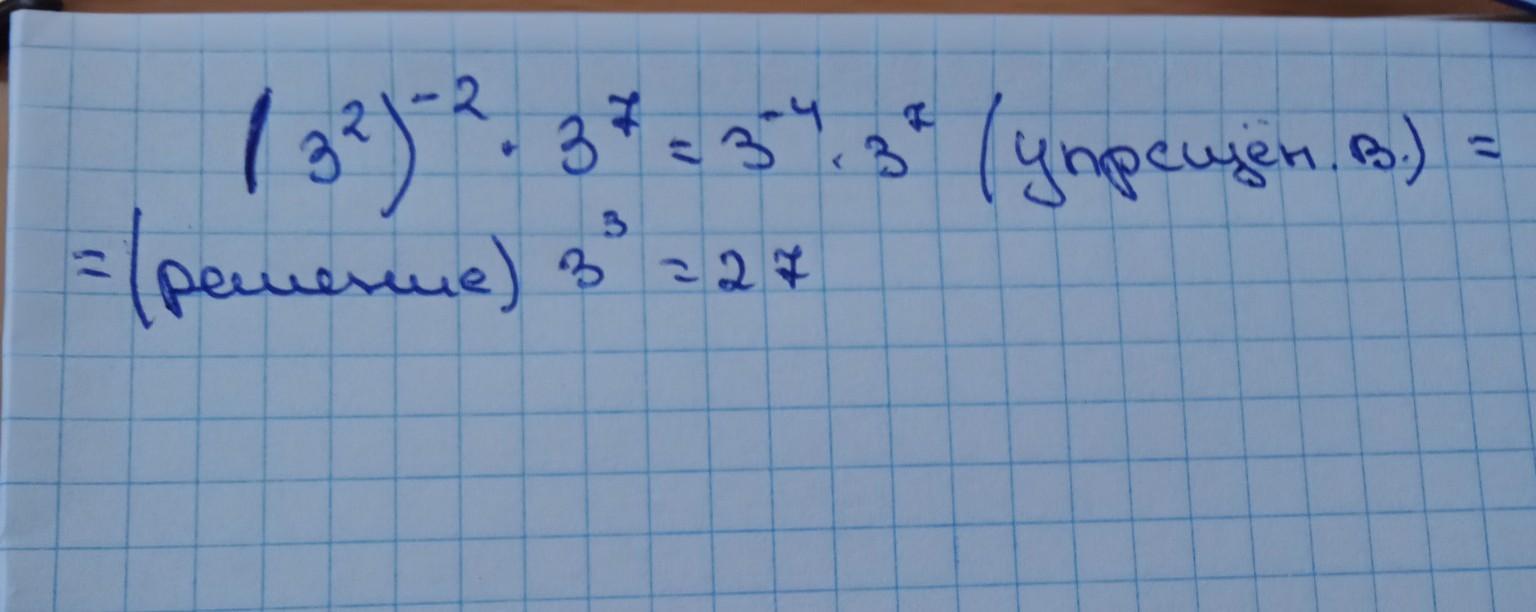 (3²)⁻² · 3⁷ = 3⁻⁴ · 3⁷ (упрощён. в.) =
= (решение) 3³ = 27